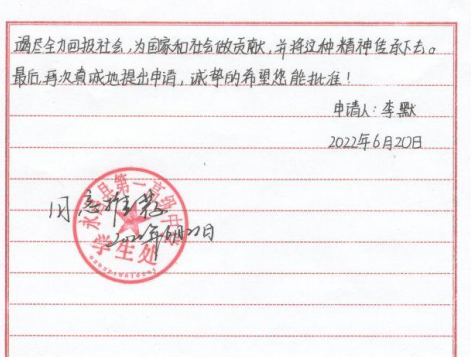 竭尽全力回报社会,为国家和社会做贡献,并将这种精神传承下去。
最后,再次真诚地提出申请,诚挚的希望您能批准!
申请人:李默
2022年6月20日
同意推荐
2022年6月20日
第一高级中
学生处